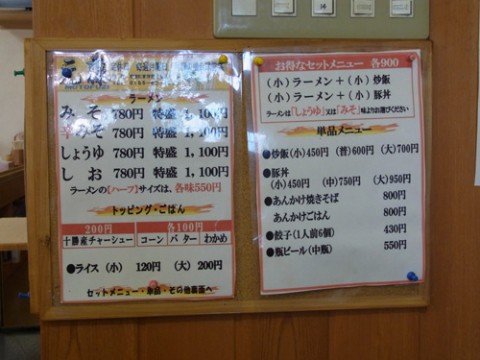 ラーメン
みそ 780円 特盛 1,100円
辛みそ 780円 特盛 1,100円
しょうゆ 780円 特盛 1,100円
しお 780円 特盛 1,100円
ラーメンの【ハーフ】サイズは、各味550円
トッピング・ごはん
200円 各100円
十勝産チャーシュー コーン バター わかめ
●ライス (小) 120円 (大) 200円
セットメニュー・単品・その他裏面へ
お得なセットメニュー 各900
(小)ラーメン+(小)炒飯
(小)ラーメン+(小)豚丼
ラーメンは「しょうゆ」又は「みそ」味よりお選びください
単品メニュー
●炒飯(小)450円 (普)600円 (大)700円
●豚丼
(小)450円 (中)750円 (大)950円
●あんかけ焼きそば 800円
あんかけごはん 800円
●餃子(1人前6個) 430円
●瓶ビール(中瓶) 550円